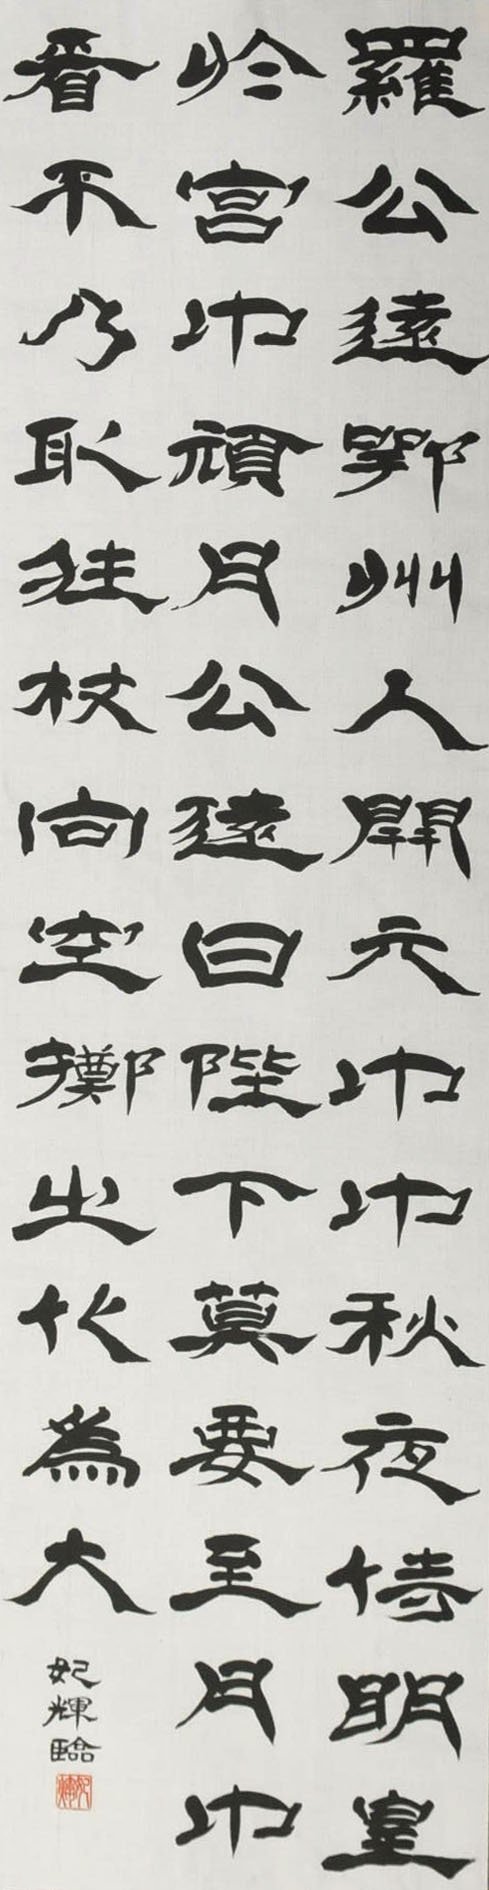 羅公遠鄂州人開元中中秋夜侍明皇
於宮中頑月公遠曰陛下莫要至月中
看不乃取拄杖向空擲之化為大
妃輝臨